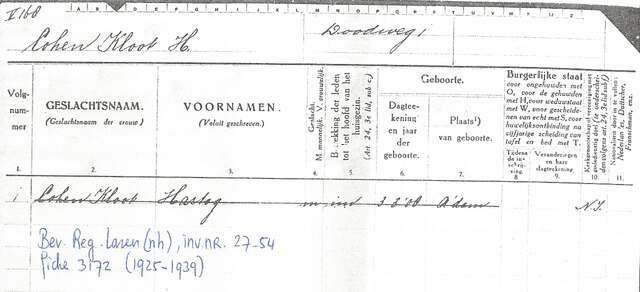 II 160
Cohen Kloot H.
Doodweg 1
Volg-
num-
mer
GESLACHTSNAAM.
(Geslachtsnaam der vrouw)
VOORNAMEN.
(Voluit geschreven.)
Geslacht.
M. mannelijk. V. vrouwelijk.
Betrekking der leden
tot het hoofd van het
huisgezin.
(Art. 24, 3e lid, sub c.)
Geboorte.
Dagtee-
kening
en jaar
der
geboorte.
Plaats¹)
van geboorte.
Burgerlijke staat
voor ongehuwden met
O, voor de gehuwden
met H, voor weduwstaat
met W, voor gescheide-
nen van echt met S, voor
huwelijksontbinding na
vijfjarige scheiding van
tafel en bed met T.
Tijdens
de in-
schrij-
ving
Veranderingen
en hare
dagteekening.
1. 2. 3. 4. 5. 6. 7. 8 9. 10. 11.
1 Cohen Kloot Hartog m ind 3 2 '00 A'dam N.I.
Bev. Reg. Laren (nh), inv.nr. 27-54
fiche 3172 (1925-1939)